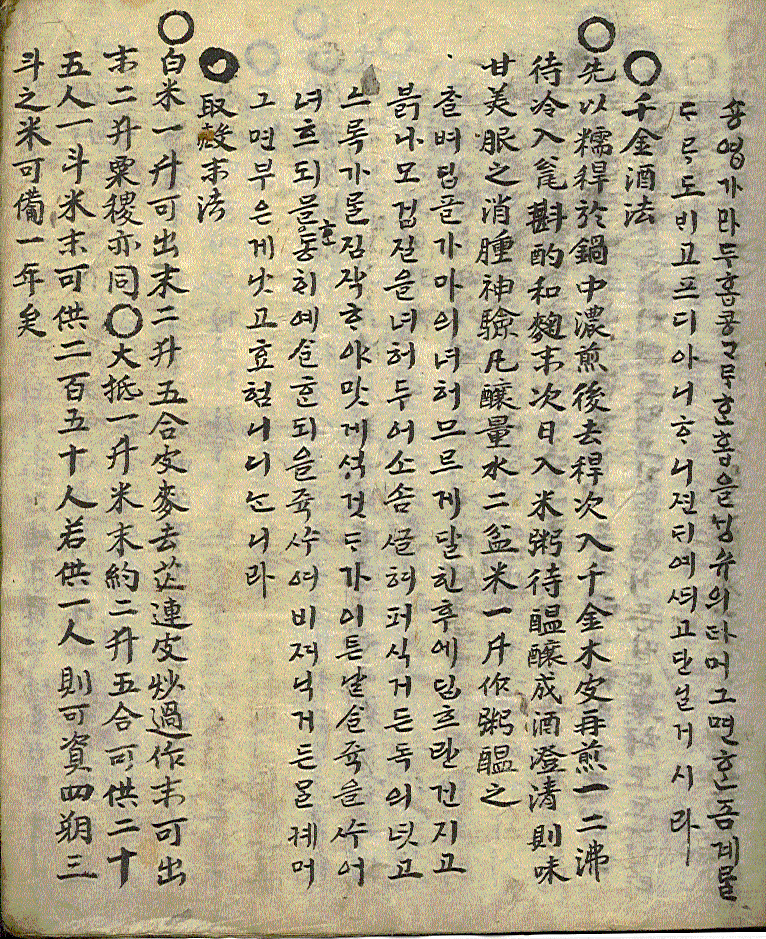 두홉콩
도비고프디아니ᄒᆞ니젼ᄃᆡ예녀코단닐거시라
○千金酒法
○先以糯稈於鍋中濃煎後去稈次入千金木皮再煎一二沸
待冷入瓮斟酌和麴末次日入米粥待醞釀成酒澄清則味
甘美服之消腫神驗凡釀量水二盆米一升作粥醞之
출벼딥플가마의녀허므르게달힌후에딥흐란건지고
붉나모겁질을녀허두어소솜ᄭᅳᆯ혀퍼식거든독의녓고
느록가ᄅᆞᆯ짐작ᄒᆞ야맛게섯것다가이튼날ᄡᆞᆯ쥭을수어
녀흐되믈ᄒᆞᆫ동희예ᄡᆞᆯᄒᆞᆫ되을쥭수여비저닉거든믈켸머
그면부은게낫고효험니니ᄂᆞ니라
取穀末法
○白米一升可出末二升五合皮麥去芒連皮炒過作末可出
末二升粟稷亦同○大抵一升米末約二升五合可供二十
五人一斗米末可供二百五十人若供一人則可資四朔三
斗之米可備一年矣